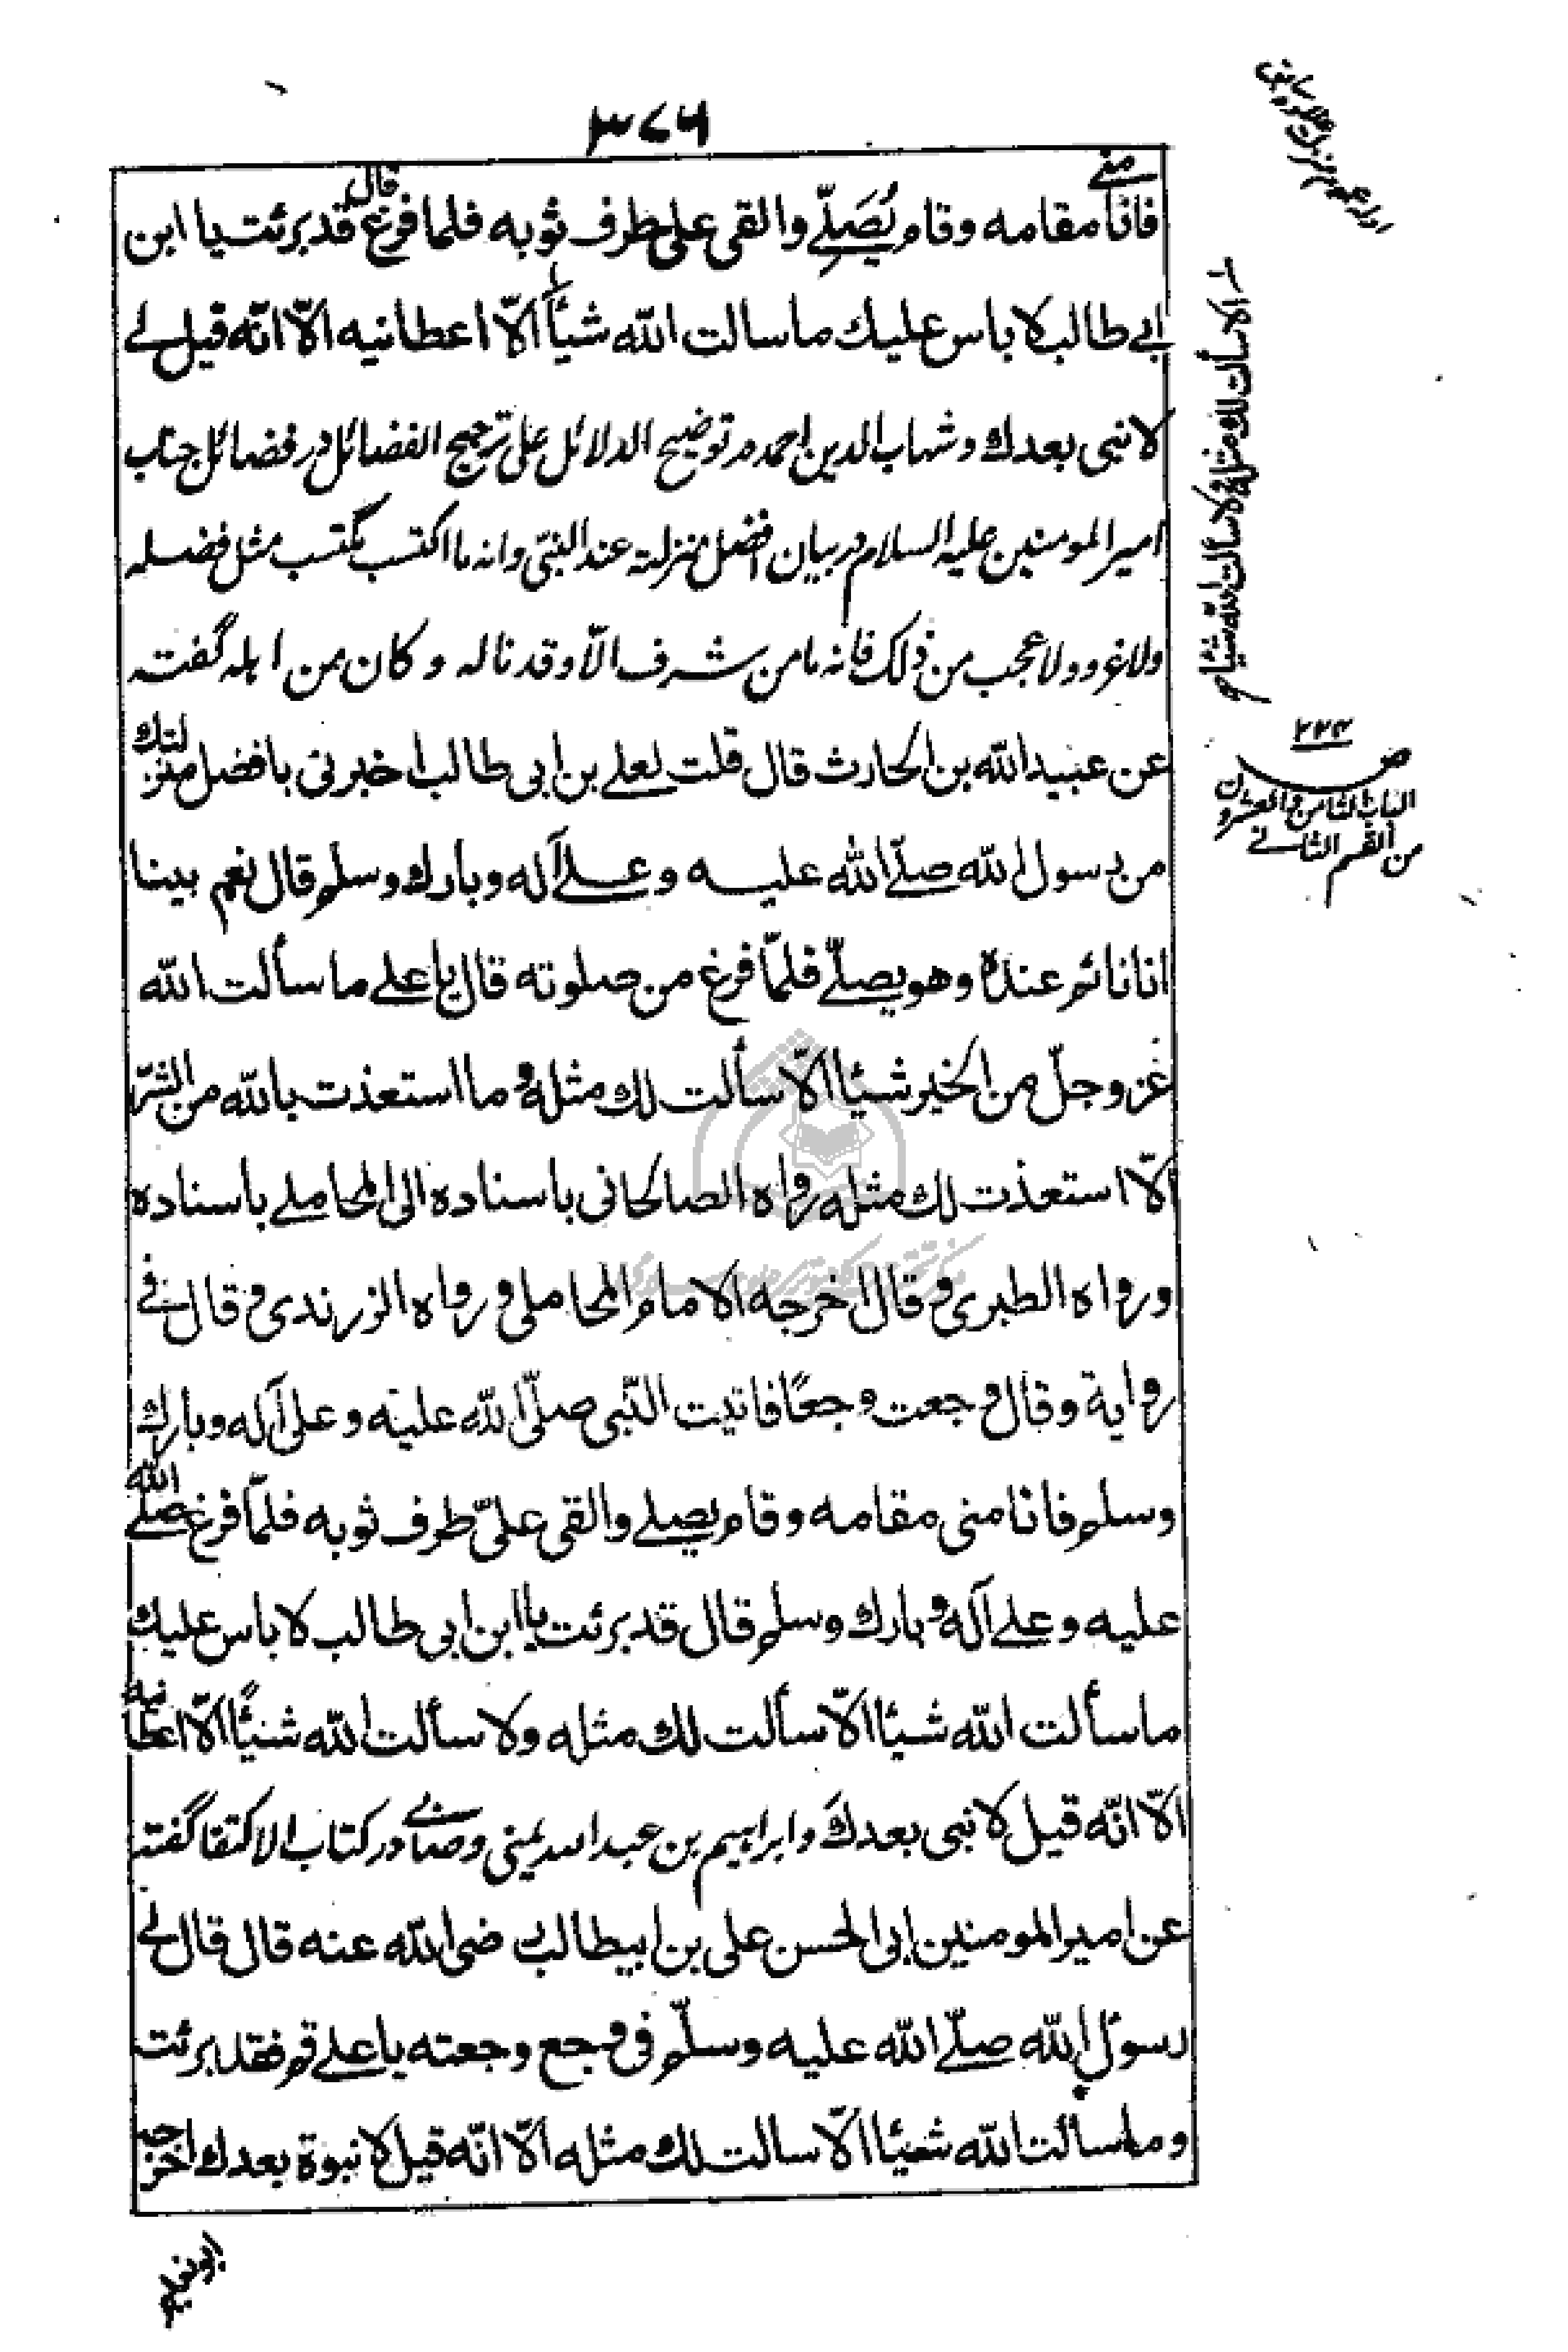 ۳۷۶
فانا منی مقامه وقام یُصَلّے والقی علی طرف ثوبه فلما فرغ قال قد برئت یا ابن
ابی طالب لا باس علیك ما سالت الله شیأً الّا اعطانیه الّا انّه قیل لے
لا نبی بعدك وشهاب الدین احمد در توضیح الدلائل علی ترجیح الفضائل در فضائل جناب
امیر المومنین علیه السلام در بیان افضل منزلته عند النبیّ وانه ما اکتسب مکتسب مثل فضله
ولا غرو ولا عجب من ذلک فانه ما من شرف الّا وقد ناله و کان ممن اهله گفته
عن عبید الله بن الحارث قال قلت لعلے بن ابی طالب اخبرنی بافضل منزلتك
من رسول الله صلّے الله علیه وعلے آله وبارك وسلم قال نعم بینا
انا نائم عنده وهو یصلّے فلمّا فرغ من صلوته قال یا علے ما سألت الله
عز وجلّ من الخیر شیئا الّا سألت لك مثله وما استعذت بالله من الشرّ
الّا استعذت لك مثله رواه الصالحانی باسناده الی المحاملے باسناده
ورواه الطبری وقال اخرجه الامام المحاملی ورواه الزرندی وقال فے
روایة وقال وجعت وجعًا فاتیت النّبی صلّی الله علیه وعلی آله وبارك
وسلم فانا منی مقامه وقام یصلے والقی علیّ طرف ثوبه فلمّا فرغ صلے الله
علیه وعلے آله وبارك وسلم قال قد برئت یا ابن ابی طالب لا باس علیك
ما سألت الله شیئا الّا سألت لك مثله ولا سألت الله شیئًا الّا اعطانیه
الّا انّه قیل لا نبی بعدكَ وابراهیم بن عبد الله یمنی وصابی در کتاب الاکتفا گفته
عن امیر المومنین ابی الحسن علی بن ابیطالب رضی الله عنه قال قال لے
رسول الله صلّے الله علیه وسلّم فی وجع وجعته یا علے قم فقد برئت
وما سألت الله شیئا الّا سالت لك مثله الّا انّه قیل لا نبوة بعدك اخرجه
ابو نعیم
الا سألت لك مثله ولا سألت الله شیئا
۲۲۴
ص
الباب الثامن والعشرون
من القسم الثانے